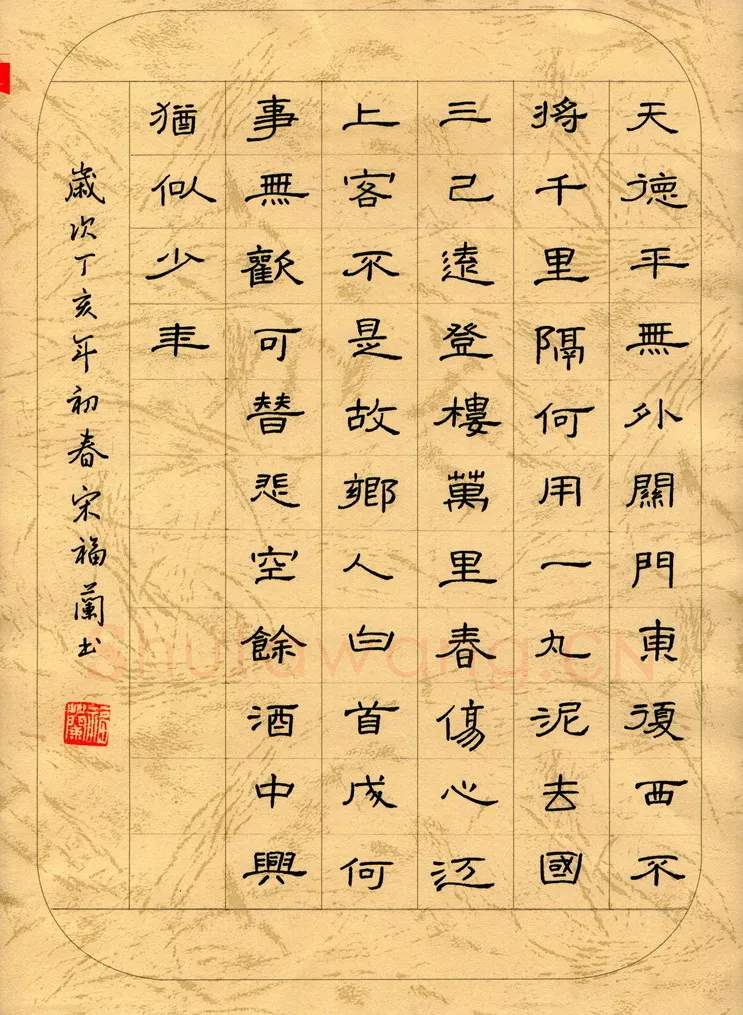 天德平無外關門東復西不
將千里隔何用一丸泥去國
三己遠登樓萬里春傷心江
上客不是故鄉人白首成何
事無歡可替悲空餘酒中興
猶似少年
歲次丁亥年初春宋福蘭书
福蘭
Shufawang.CN